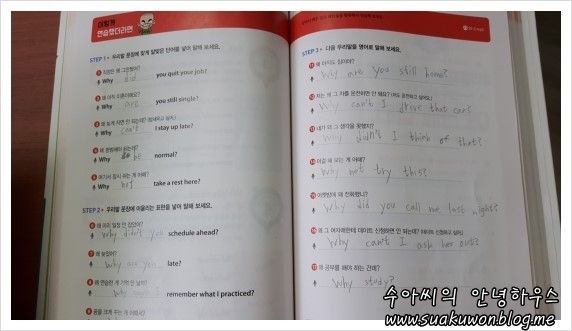 이렇게
연습했더라면
STEP 1 우리말 문장에 맞게 알맞은 단어를 넣어 말해 보세요.
1 직장은 왜 그만뒀어?
Why did you quit your job?
2 왜 아직 미혼이에요?
Why are you still single?
3 왜 늦게 자면 안 되는데?
Why can't I stay up late?
4 왜 평범해야 하는데?
Why be normal?
5 여기서 잠시 쉬는 게 어때?
Why not take a rest here?
STEP 2 우리말 문장에 어울리는 표현을 넣어 말해 보세요.
6 왜 미리 일정 안 잡았어?
Why didn't you schedule ahead?
7 왜 늦었어?
Why are you late?
8 왜 연습한 게 기억 안 날까?
remember what I practiced?
9 꿈을 크게 꾸는 게 어때서?
STEP 3 다음 우리말을 영어로 말해 보세요.
11 왜 아직도 집이야?
Why are you still home?
12 저는 왜 그 차를 운전하면 안 돼요?
Why can't I drive that car?
13 내가 왜 그 생각을 못했지?
Why didn't I think of that?
14 이걸 해 보는 게 어때?
Why not try this?
15 어젯밤에 왜 전화했니?
Why did you call me last night?
16 왜 그 여자애한테 데이트 신청하면 안 되는데?
Why can't I ask her out?
17 왜 공부를 해야 하는 건데?
Why study?
수아씨의 안녕하우스
www.suakuwon.blog.me